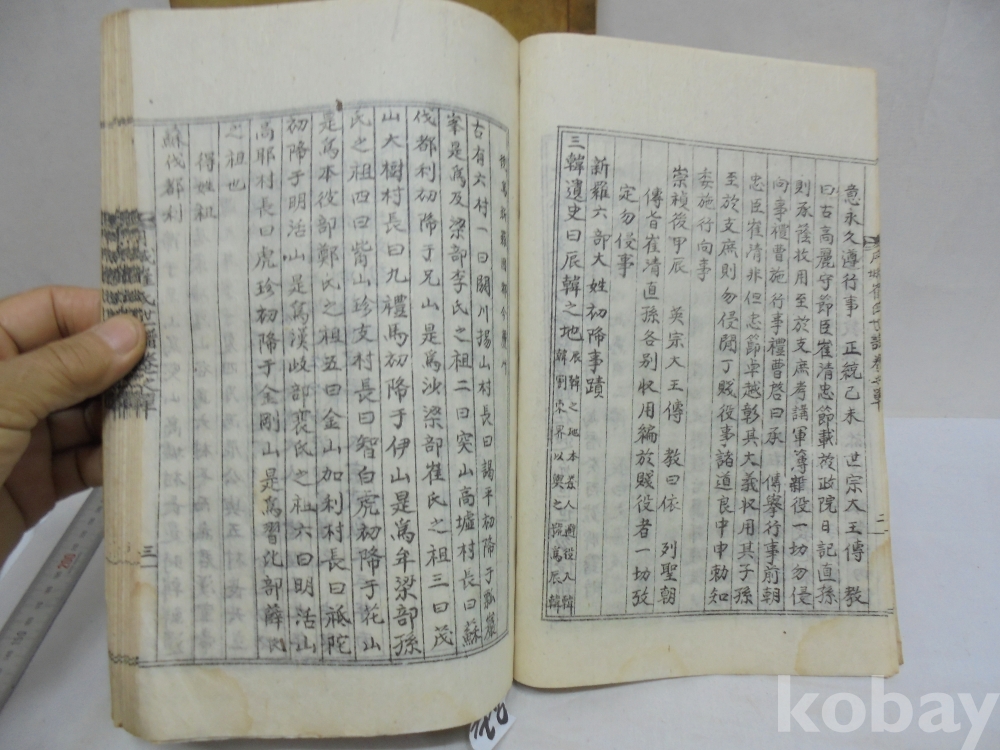 意永久遵行事 正統己未 世宗大王傳 教
曰古高麗守節臣崔清忠節載於政院日記直孫
則承蔭收用至於支庶考講軍等雜役一切勿侵
向事禮曹施行事禮曹啓曰承 傳擧行事前朝
忠臣崔清非但忠節卓越彰其大義収用其子孫
至於支庶則勿侵閑丁賤役事諸道良中申勅知
委施行向事
崇禎後甲辰 英宗大王傳 教曰依 列聖朝
傳旨崔清直孫各別収用編於賤役者一切攷
定勿侵事
新羅六部大姓初降事蹟
三韓遺史曰辰韓之地
二
古有六村一曰閼川揚山村長曰謁平初降于瓢巖
峯是爲及梁部李氏之祖二曰突山高墟村長曰蘇
伐都利初降于兄山是爲沙梁部崔氏之祖三曰茂
山大樹村長曰九禮馬初降于伊山是爲牟梁部孫
氏之祖四曰觜山珍支村長曰智白虎初降于花山
是爲本彼部鄭氏之祖五曰金山加利村長曰祗陀
初降于明活山是爲漢岐部裵氏之祖六曰明活山
高耶村長曰虎珍初降于金剛山是爲習比部薛氏
之祖也
得姓祖
蘇伐都利
三
kobay